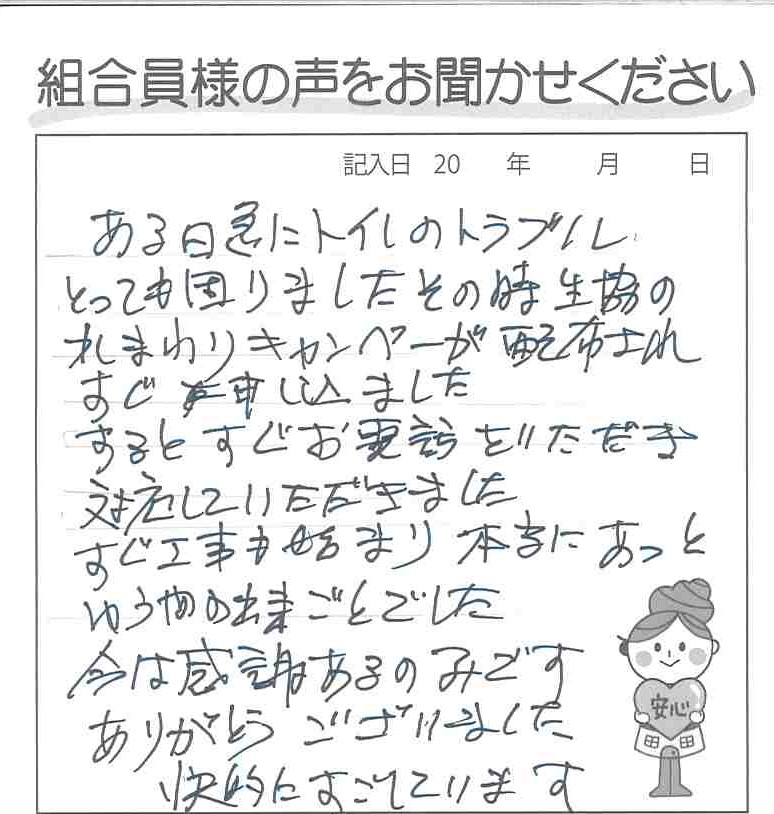 組合員様の声をお聞かせください
記入日 20 年 月 日
ある日急にトイレのトラブル
とっても困りましたその時生協の
水まわりキャンペーンが配布され
すぐ申し込ました
するとすぐお電話をいただき
対応していただきました
すぐ工事も始まり本当にあっと
ゆう間の出来ごとでした
今は感謝あるのみです
ありがとうございました
快的にすごしています
安心